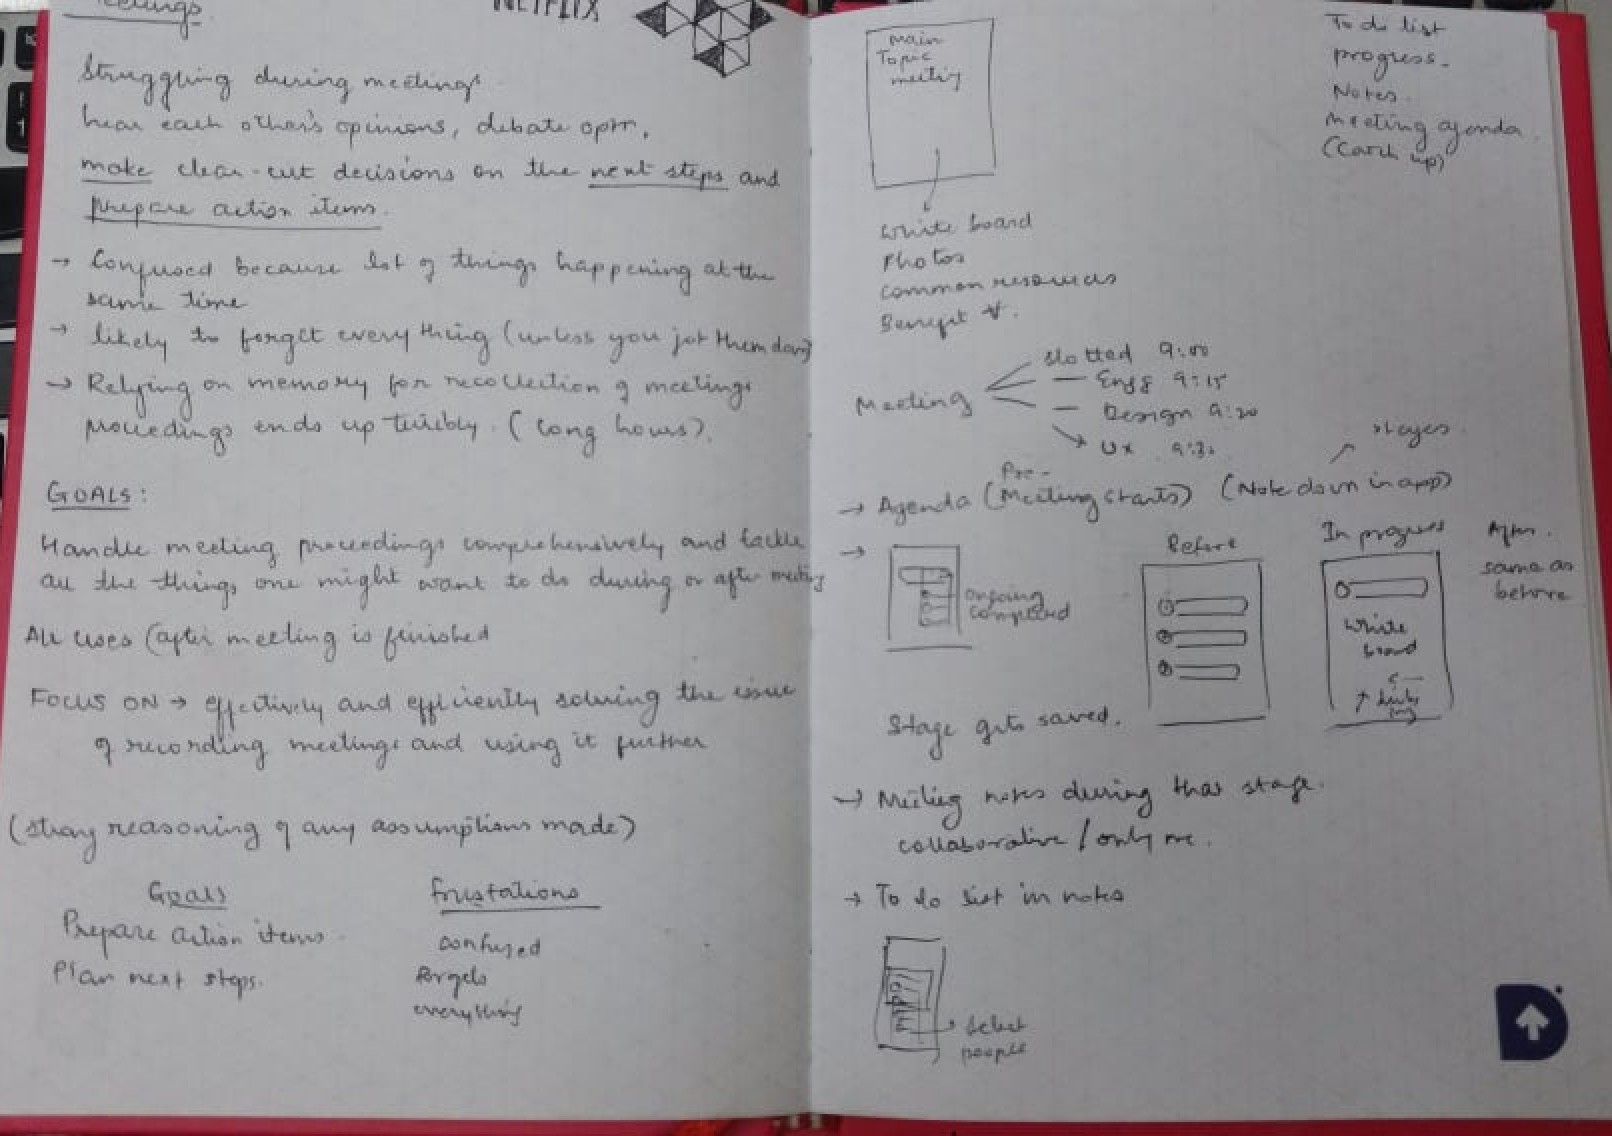 NETFLIX
Struggling during meetings
hear each other's opinions, debate
make clear-cut decisions on the next steps and
prepare action items.
→ Confused because lot of things happening at the
same time
→ likely to forget everything (unless you jot them down)
→ Relying on memory for recollection of meetings
proceedings ends up terribly. (long hours).
GOALS:
Handle meeting proceedings comprehensively and tackle
all the things one might want to do during or after meeting
All uses (after meeting is finished
FOCUS ON → effectively and efficiently solving the issue
of recording meetings and using it further
(stray reasoning of any assumptions made)
Goals
Prepare action items.
Plan next steps.
frustations
confused
forgets
everything
Main
Topic
meeting
White board
Photos
common resources
Benefit
To do list
progress.
Notes.
Meeting agenda
(Catch up)
Meeting
slotted 9:00
— Engg 9:15
— Design 9:20
UX
stages.
Pre-
→ Agenda (Meeting starts) (Note down in app)
→ Ongoing
completed
Before
In progress
White
board
After.
same as
before
Stage gets saved.
→ Meeting notes during that stage.
collaborative / only me.
→ To do list in notes
Select
people